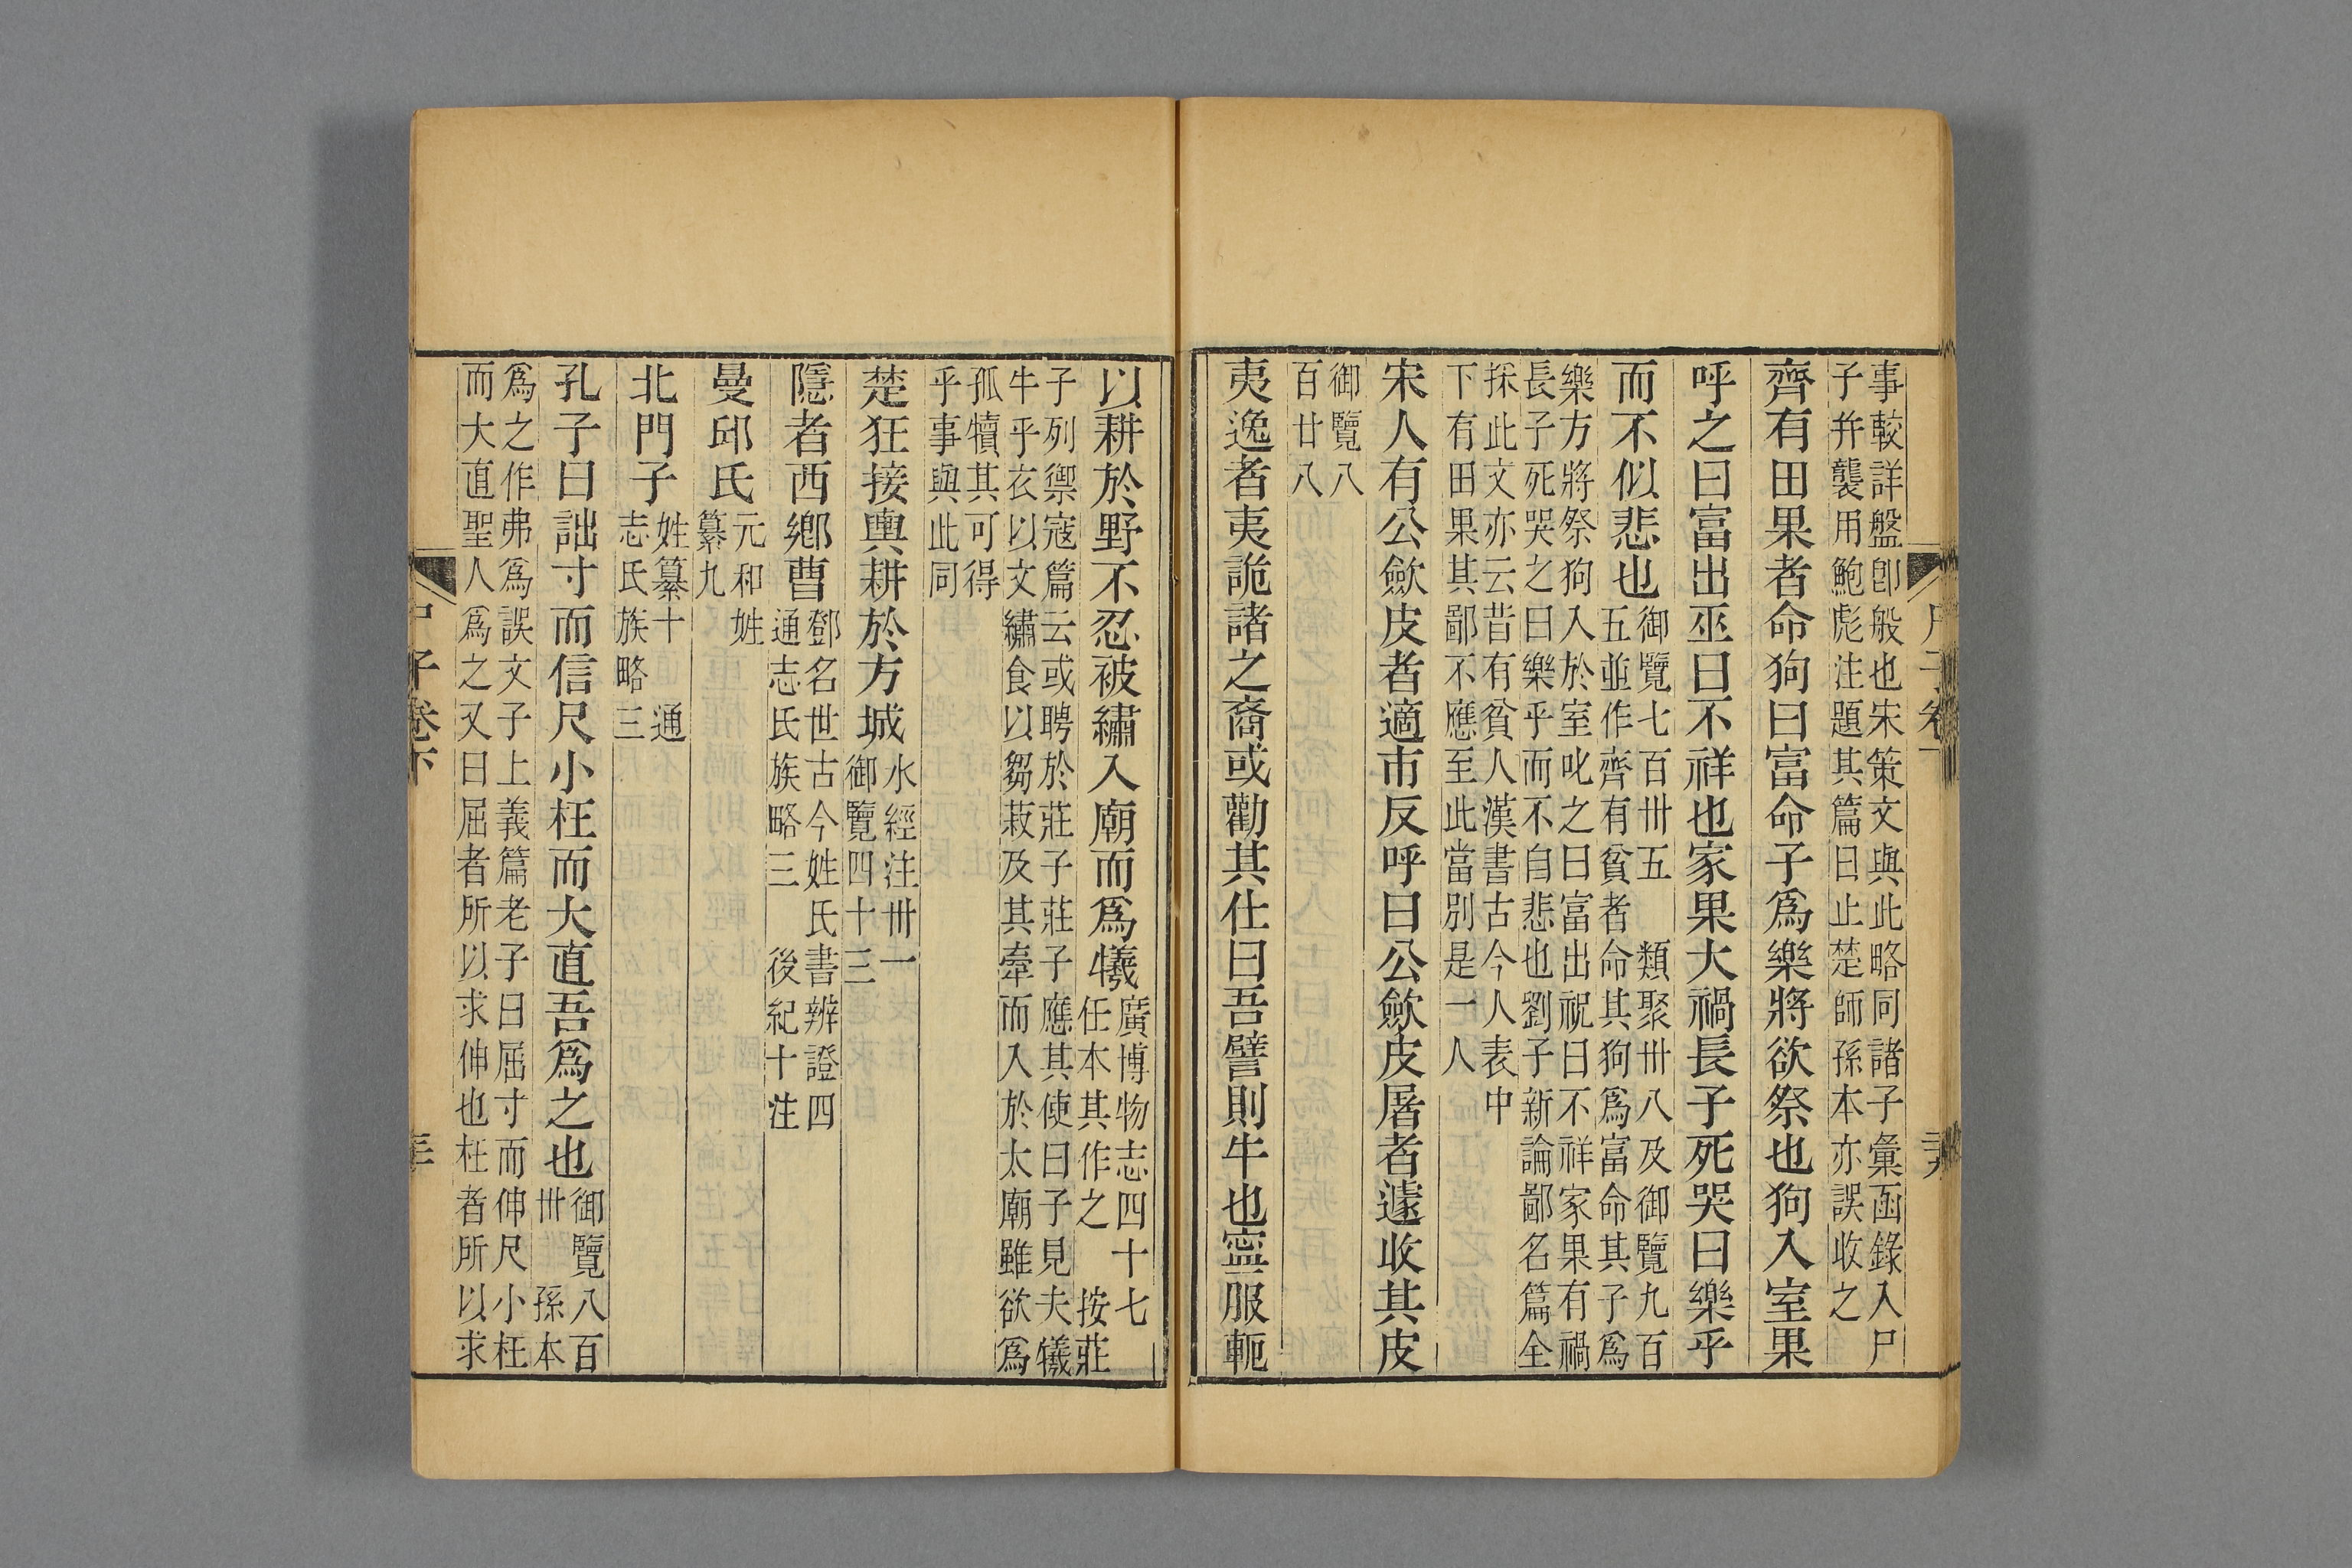 事較詳盤卽般也宋策文與此略同諸子彙函錄入尸
子幷襲用鮑彪注題其篇曰止楚師孫本亦誤收之
齊有田果者命狗曰富命子爲樂將欲祭也狗入室果
呼之曰富出巫曰不祥也家果大禍長子死哭曰樂乎
而不似悲也
御覽七百卅五　類聚卅八及御覽九百
五並作齊有貧者命其狗爲富命其子爲
樂方將祭狗入於室叱之曰富出祝曰不祥家果有禍
長子死哭之曰樂乎而不自悲也劉子新論鄙名篇全
採此文亦云昔有貧人漢書古今人表中
下有田果其鄙不應至此當別是一人
宋人有公歛皮者適市反呼曰公歛皮屠者遽收其皮
御覽八
百廿八
夷逸者夷詭諸之裔或勸其仕曰吾譬則牛也寧服軛
以耕於野不忍被繡入廟而爲犧
廣博物志四十七
任本其作之　按莊
子列禦寇篇云或聘於莊子莊子應其使曰子見夫犧
牛乎衣以文繡食以芻菽及其牽而入於太廟雖欲爲
孤犢其可得
乎事與此同
楚狂接輿耕於方城
水經注卅一
御覽四十三
隱者西鄉曹
鄧名世古今姓氏書辨證四
通志氏族略三　後紀十注
曼邱氏
元和姓
纂九
北門子
姓纂十　通
志氏族略三
孔子曰詘寸而信尺小枉而大直吾爲之也
御覽八百
卅　孫本
爲之作弗爲誤文子上義篇老子曰屈寸而伸尺小枉
而大直聖人爲之又曰屈者所以求伸也枉者所以求
子卷下